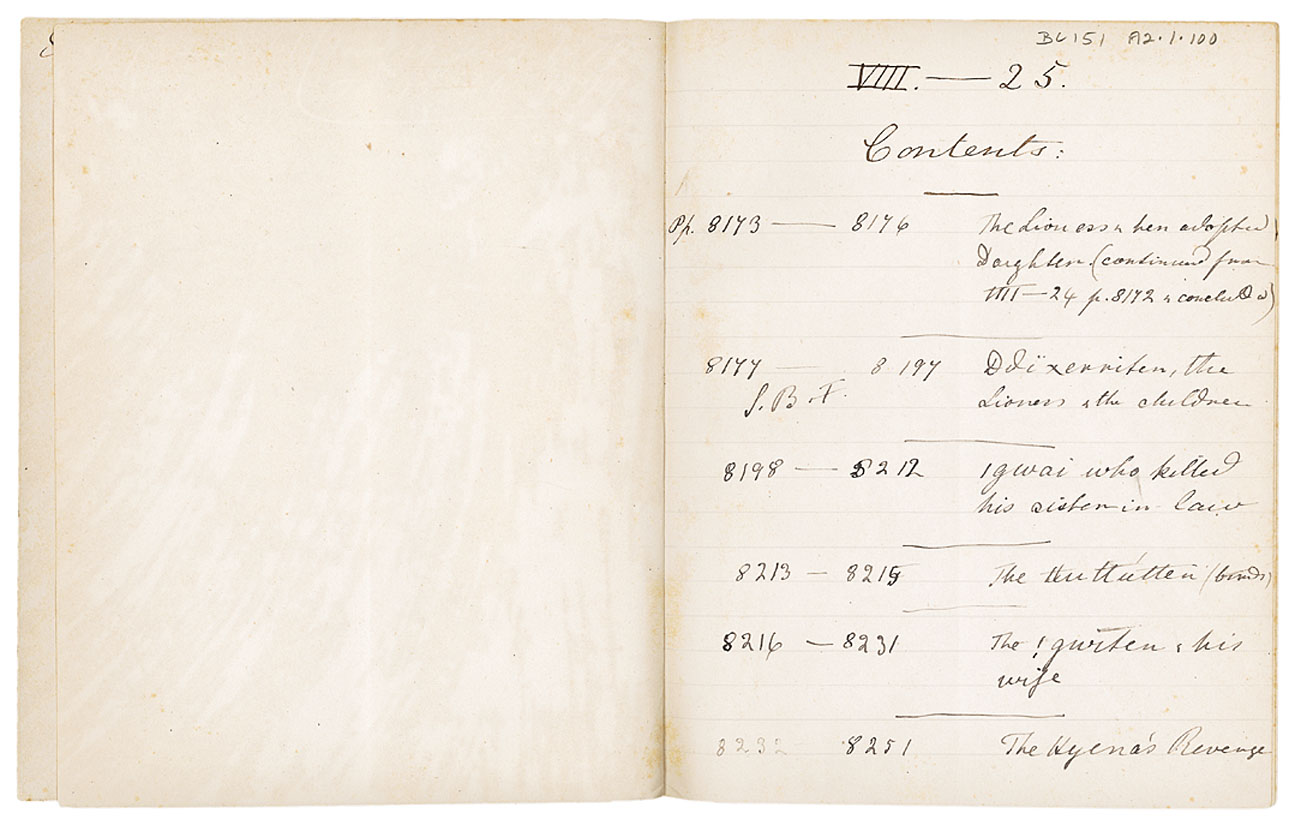 BC 151 A2.1.100
VIII. — 25.
Contents:
Pp. 8173 — 8176 The Lioness & her adopted
Daughter. (continued from
VIII — 24 p. 8172 & concluded)
8177 — 8197 the
J.B.F. Lioness & the children
8198 — 8212 who killed
his sister in law
8213 — 8215 The (birds)
8216 — 8231 The & his
wife
8232 8251 The Hyena's Revenge